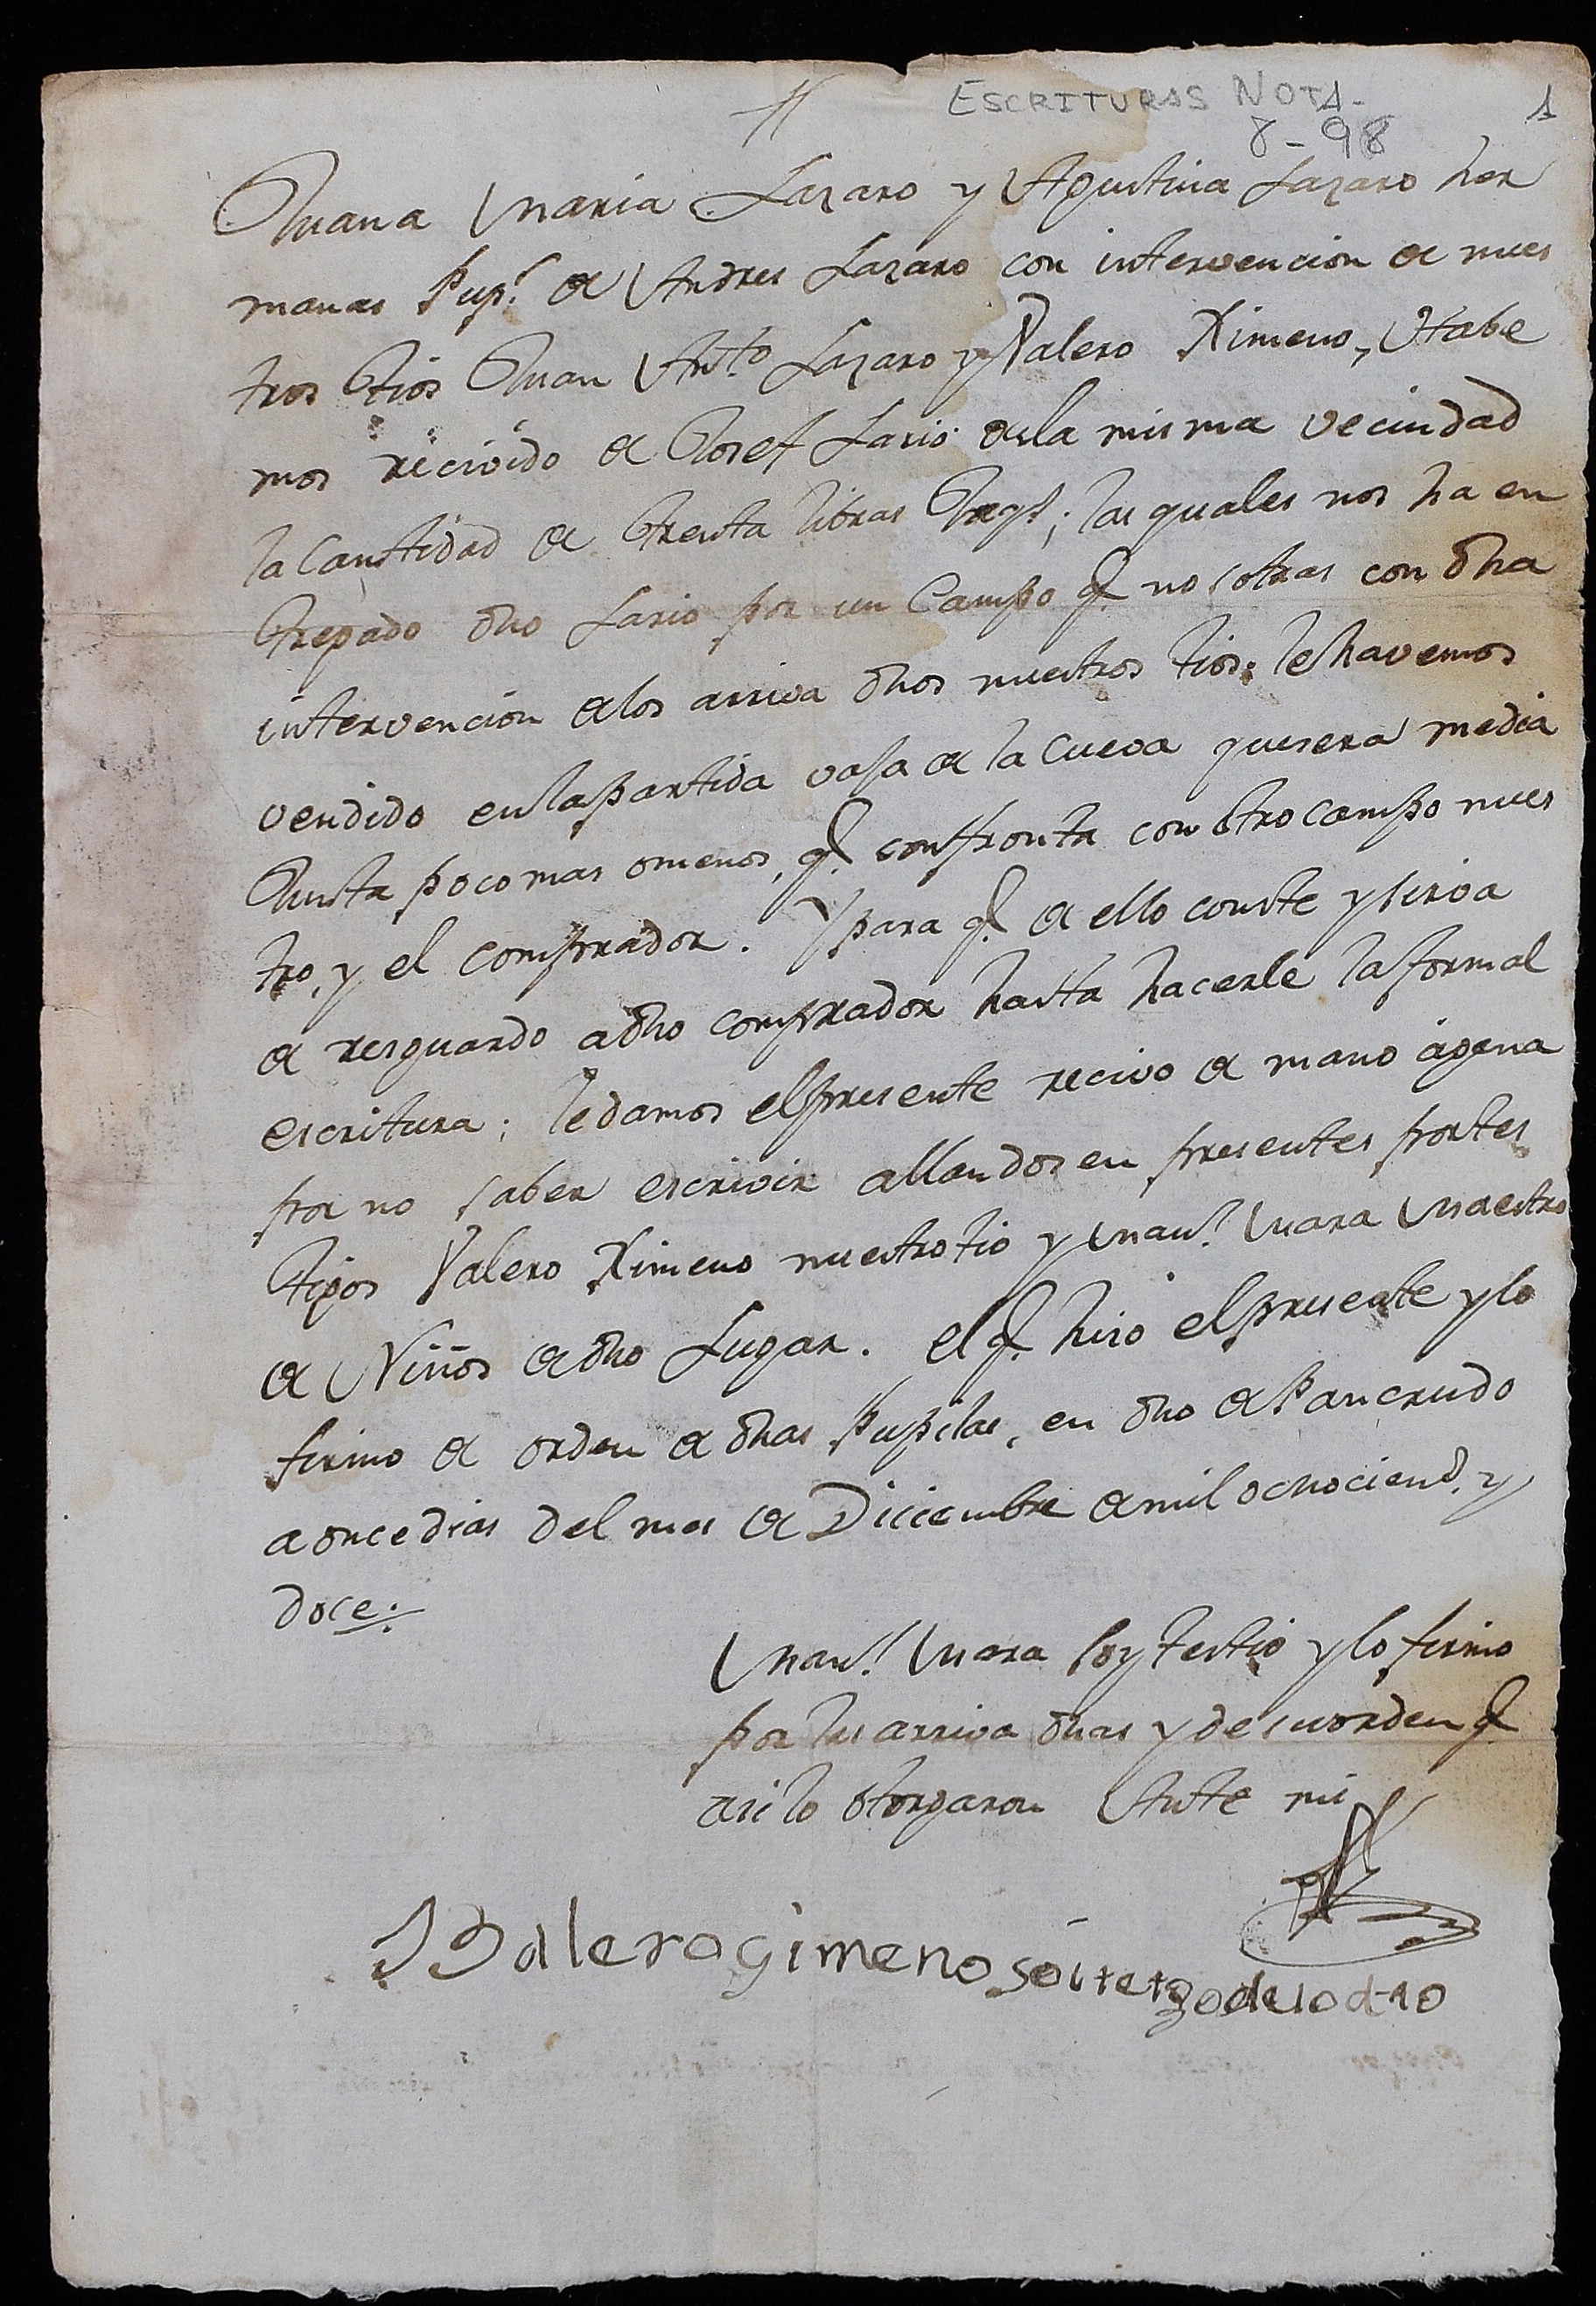 ESCRITURAS NOTA-
8-98
1
Juana Maria Lazaro y Agustina Lazaro her
manas Pup.s de Andres Lazaro con intervencion de nues
tros tios Juan Ant.o Lazaro y Valero Ximeno, Habe
mos recivido de Josef Lario de la misma vecindad
la Cantidad de treinta libras Jaq.s; las quales nos ha en
tregado dho Lario por un Campo q.e nosotras con dha
intervencion de los arriva dhos nuestros tios le havemos
vendido en la partida vaja de la Cueva que sera media
Junta poco mas o menos, q.e confronta con otro campo nues
tro, y el comprador. Y para q.e de ello conste y sirva
de resguardo a dho comprador hasta hacerle la formal
escritura; le damos el presente recivo de mano agena
por no saber escrivir allandos en presentes por tes
tigos Valero Ximeno nuestro tio y Man.l Mara Maestro
de Niños de dho Lugar. el q.e hizo el presente y lo
firmo de orden de dhas Pupilas, en dho de Pancrudo
a once dias del mes de Diciembre de mil ochocient.s y
doce.
Man.l Mara soy testio y lo firmo
por las arriva dhas y de su orden q.e
asi lo otorgaron Ante mi
Balero gimeno sói tetgo de lo d-10